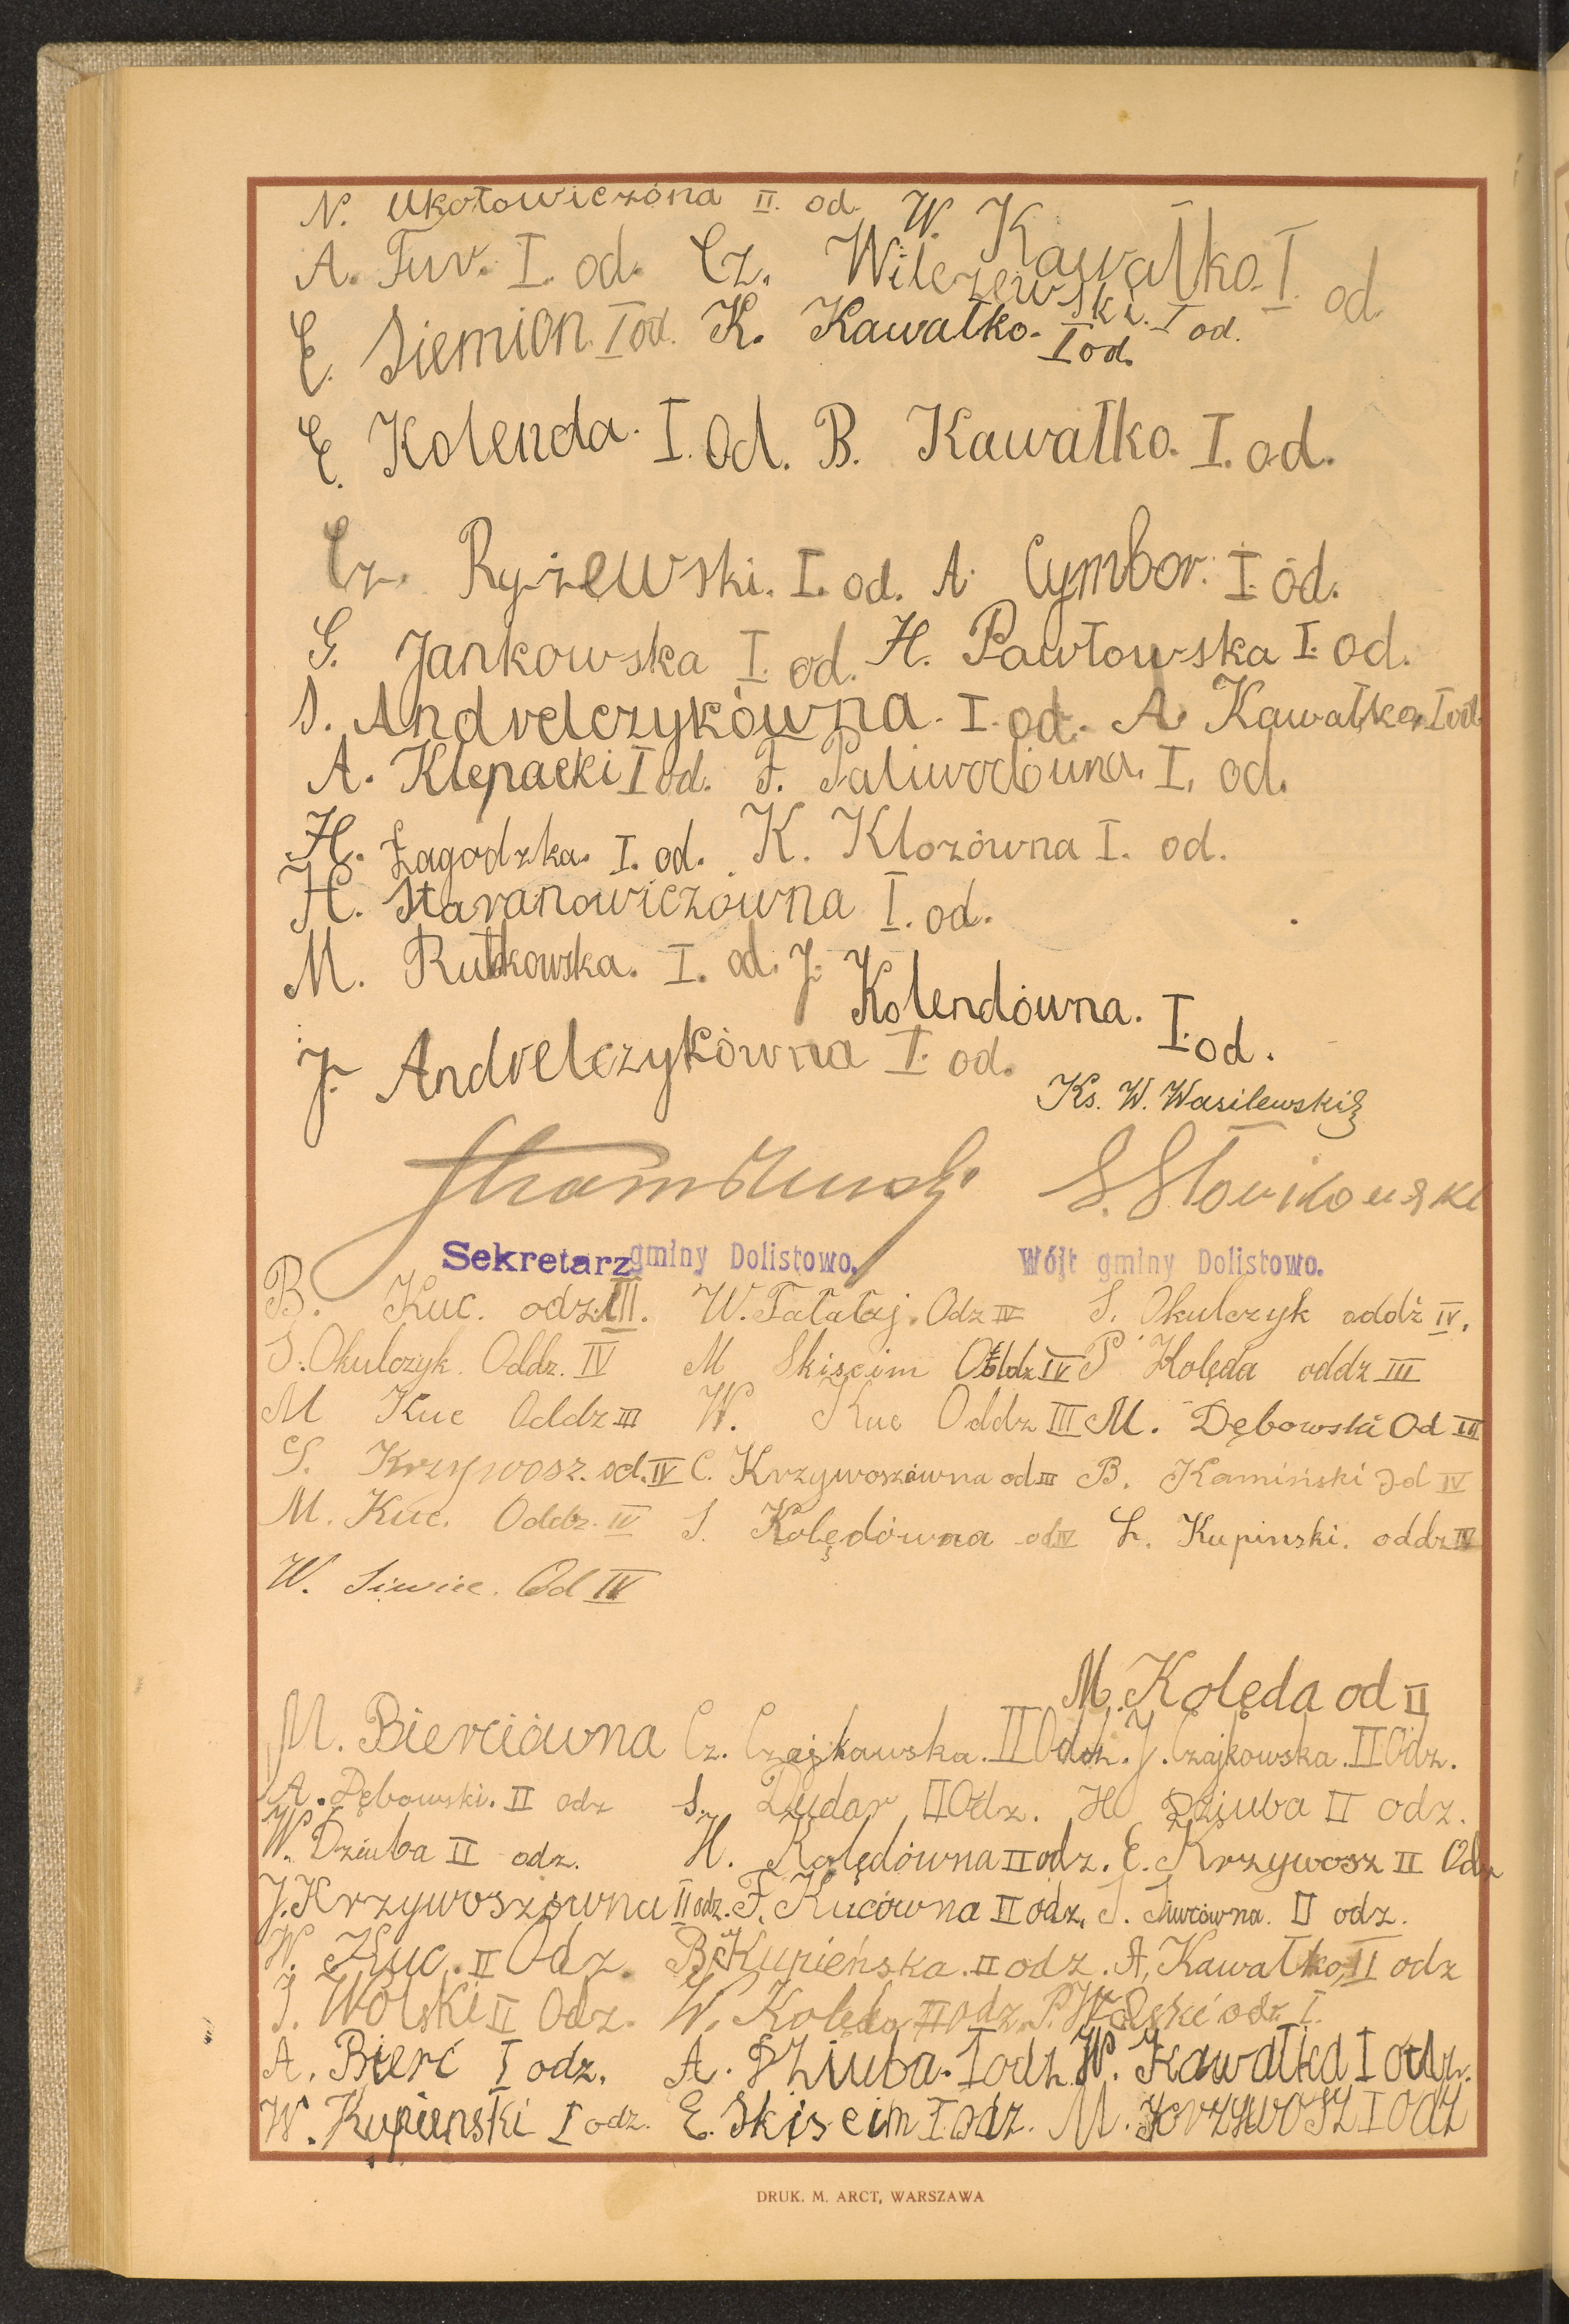 N. Ukołowiczóna II. od. W. Kawałko. I. od.
A. Fur. I. od. Cz. Wilczewski. I od.
E. Siemion I od. K. Kawałko. I od.
E. Kolenda. I. Od. B. Kawałko. I. od.
Cz. Ryżewski. I. od. A. Cymbor. I. od.
G. Jankowska I. od. H. Pawłowska I. od.
S. Andrelczykówna. I. od. A. Kawałko. I od.
A. Klepacki I od. F. Paliwodówna. I. od.
H. Łagodzka. I. od. K. Klozówna I. od.
H. Staranowiczówna I. od.
M. Rutkowska. I. od. J. Kolendówna. I. od.
J. Andrelczykówna I. od.
Ks. W. Wasilewski
S. Słowikowski
Sekretarz gminy Dolistowo. Wójt gminy Dolistowo.
B. Kuc. odz. III. W. Tałałaj. Odz IV S. Okulczyk oddz IV.
S. Okulczyk. Oddz. IV M Skiscim Oddz IV P Kolęda oddz III
M Kuc Oddz III W. Kuc Oddz III M. Dębowski Od III
S. Krzywosz. od. IV C. Krzywoszówna od III B. Kamiński Od IV
M. Kuc. Oddz. IV S. Kolędówna od IV L. Kupinski. oddz IV
W. Siwiec. Od IV
M. Kolęda od II
M. Bierciówna Cz. Czajkawska. II Odz. J. Czajkowska. II Odz.
A. Dębowski. II odz S. Dudar II Odz. H Dziuba II odz.
W. Dziuba II odz. H. Kolędówna II odz. E. Krzywosz II Odz
J. Krzywoszówna II odz. F. Kucówna II odz. S. II odz.
W. Kuc. II Odz. B. Kupieńska. II odz. A. Kawałko, II odz
J. Wolski II Odz. W. Kolęda II odz. P. Wolski odz. I.
A. Bierć I odz. A. Dziuba. I odz. W. Kawałka I odz.
W. Kupienski I odz. E. Skiscim I. odz. M. Krzywosz I odz
DRUK. M. ARCT, WARSZAWA